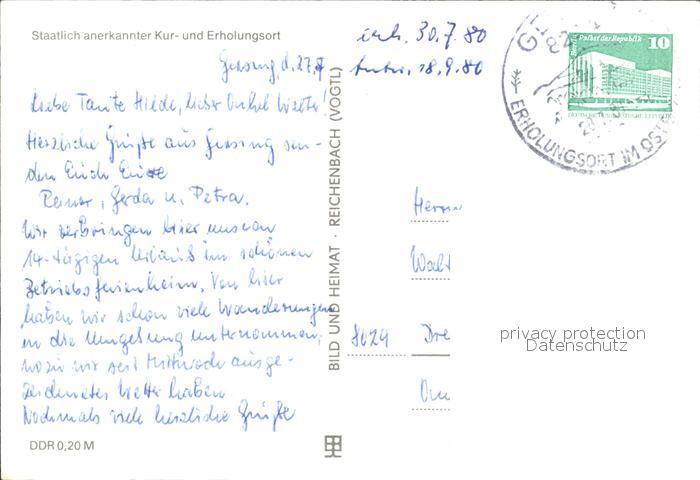 Staatlich anerkannter Kur- und Erholungsort
Geising, d. 27.7
Liebe Tante Hilde, lieber Onkel Walter!
Herzliche Grüße aus Geising sen-
den Euch Eure
Reiner, Gerda u. Petra.
Wir verbringen hier unseren
14-tägigen Urlaub im schönen
Betriebsferienheim. Von hier
haben wir schon viele Wanderungen
in die Umgebung unternommen,
wozu wir seit Mittwoch ausge-
zeichnetes Wetter haben
Nochmals viele herzliche Grüße
DDR 0,20 M
BILD UND HEIMAT · REICHENBACH (VOGTL)
erh. 30.7.80
antw. 18.9.80
Palast der Republik
10
ERHOLUNGSORT IM OST
Herrn
Walt
8029 Dre
privacy protection
Datenschutz